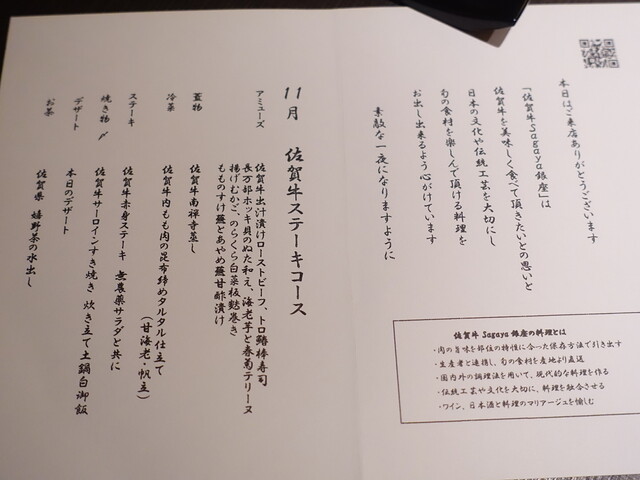 本日はご来店ありがとうございます
「佐賀牛Sagaya銀座」は
佐賀牛を美味しく食べて頂きたいとの思いと
日本の文化や伝統工芸を大切にし
旬の食材を楽しんで頂ける料理を
お出し出来るよう心がけています
素敵な一夜になりますように
佐賀牛 Sagaya 銀座の料理とは
・肉の旨味を部位の特性に合った保存方法で引き出す
・生産者と連携し、旬の食材を産地より直送
・国内外の調理法を用いて、現代的な料理を作る
・伝統工芸や文化を大切に、料理を融合させる
・ワイン、日本酒と料理のマリアージュを愉しむ
11月 佐賀牛ステーキコース
アミューズ
佐賀牛出汁漬けローストビーフ、トロ鯖棒寿司
長万部ホッキ貝のぬた和え、海老芋と春菊テリーヌ
揚げむかご、のらくら白菜板麩巻き
もものすけ蕪とあやめ蕪甘酢漬け
蓋物 佐賀牛南禅寺蒸し
冷菜 佐賀牛内もも肉の昆布締めタルタル仕立て
（甘海老・帆立）
ステーキ 佐賀牛赤身ステーキ 無農薬サラダと共に
焼き物〆 佐賀牛サーロインすき焼き 炊き立て土鍋白御飯
デザート 本日のデザート
お茶 佐賀県 嬉野茶の水出し